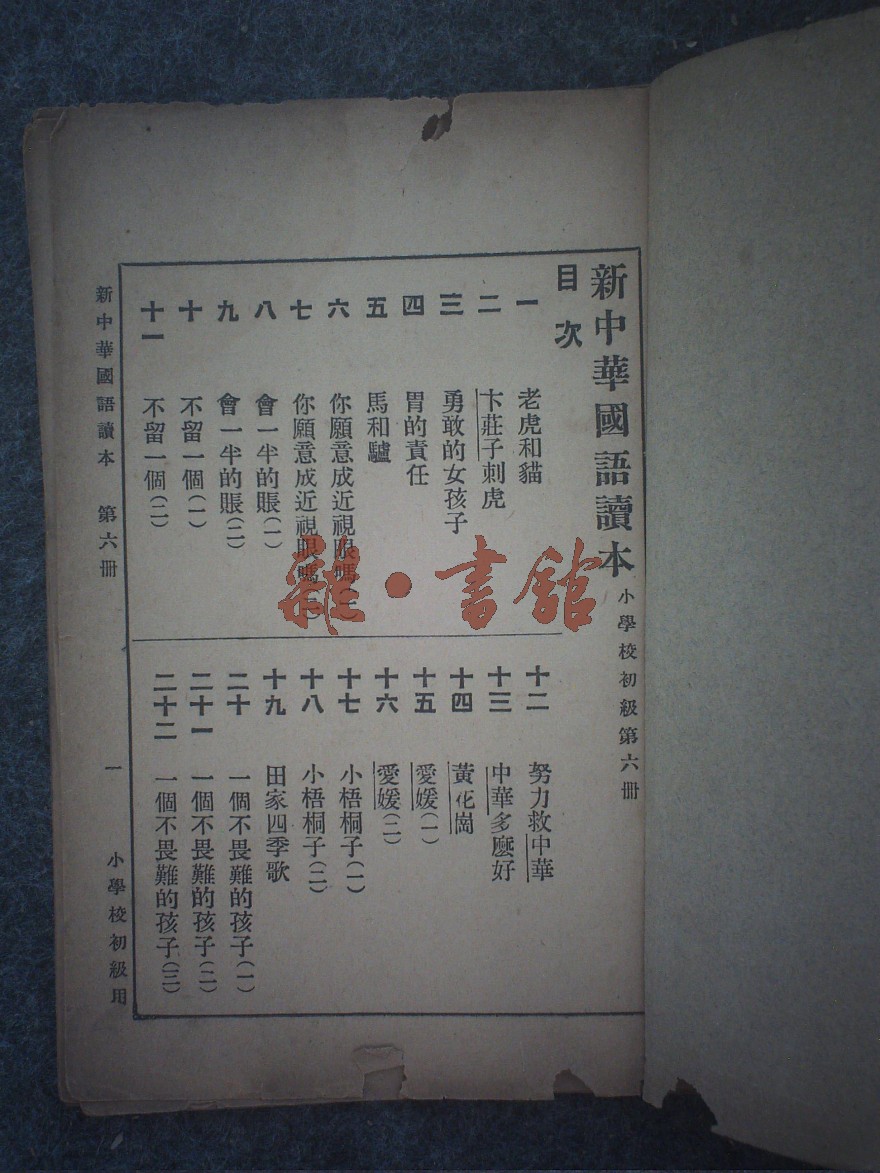 新中華國語讀本 小學校初級第六冊
目次
一 老虎和貓
二 卞莊子刺虎
三 勇敢的女孩子
四 胃的責任
五 馬和驢
六 你願意成近視眼嗎(一)
七 你願意成近視眼嗎(二)
八 會一半的賬(一)
九 會一半的賬(二)
十 不留一個(一)
十一 不留一個(二)
十二 努力救中華
十三 中華多麽好
十四 黃花崗
十五 愛媛(一)
十六 愛媛(二)
十七 小梧桐子(一)
十八 小梧桐子(二)
十九 田家四季歌
二十 一個不畏難的孩子(一)
二十一 一個不畏難的孩子(二)
二十二 一個不畏難的孩子(三)
新中華國語讀本 第六冊 一 小學校初級用
雜·書館